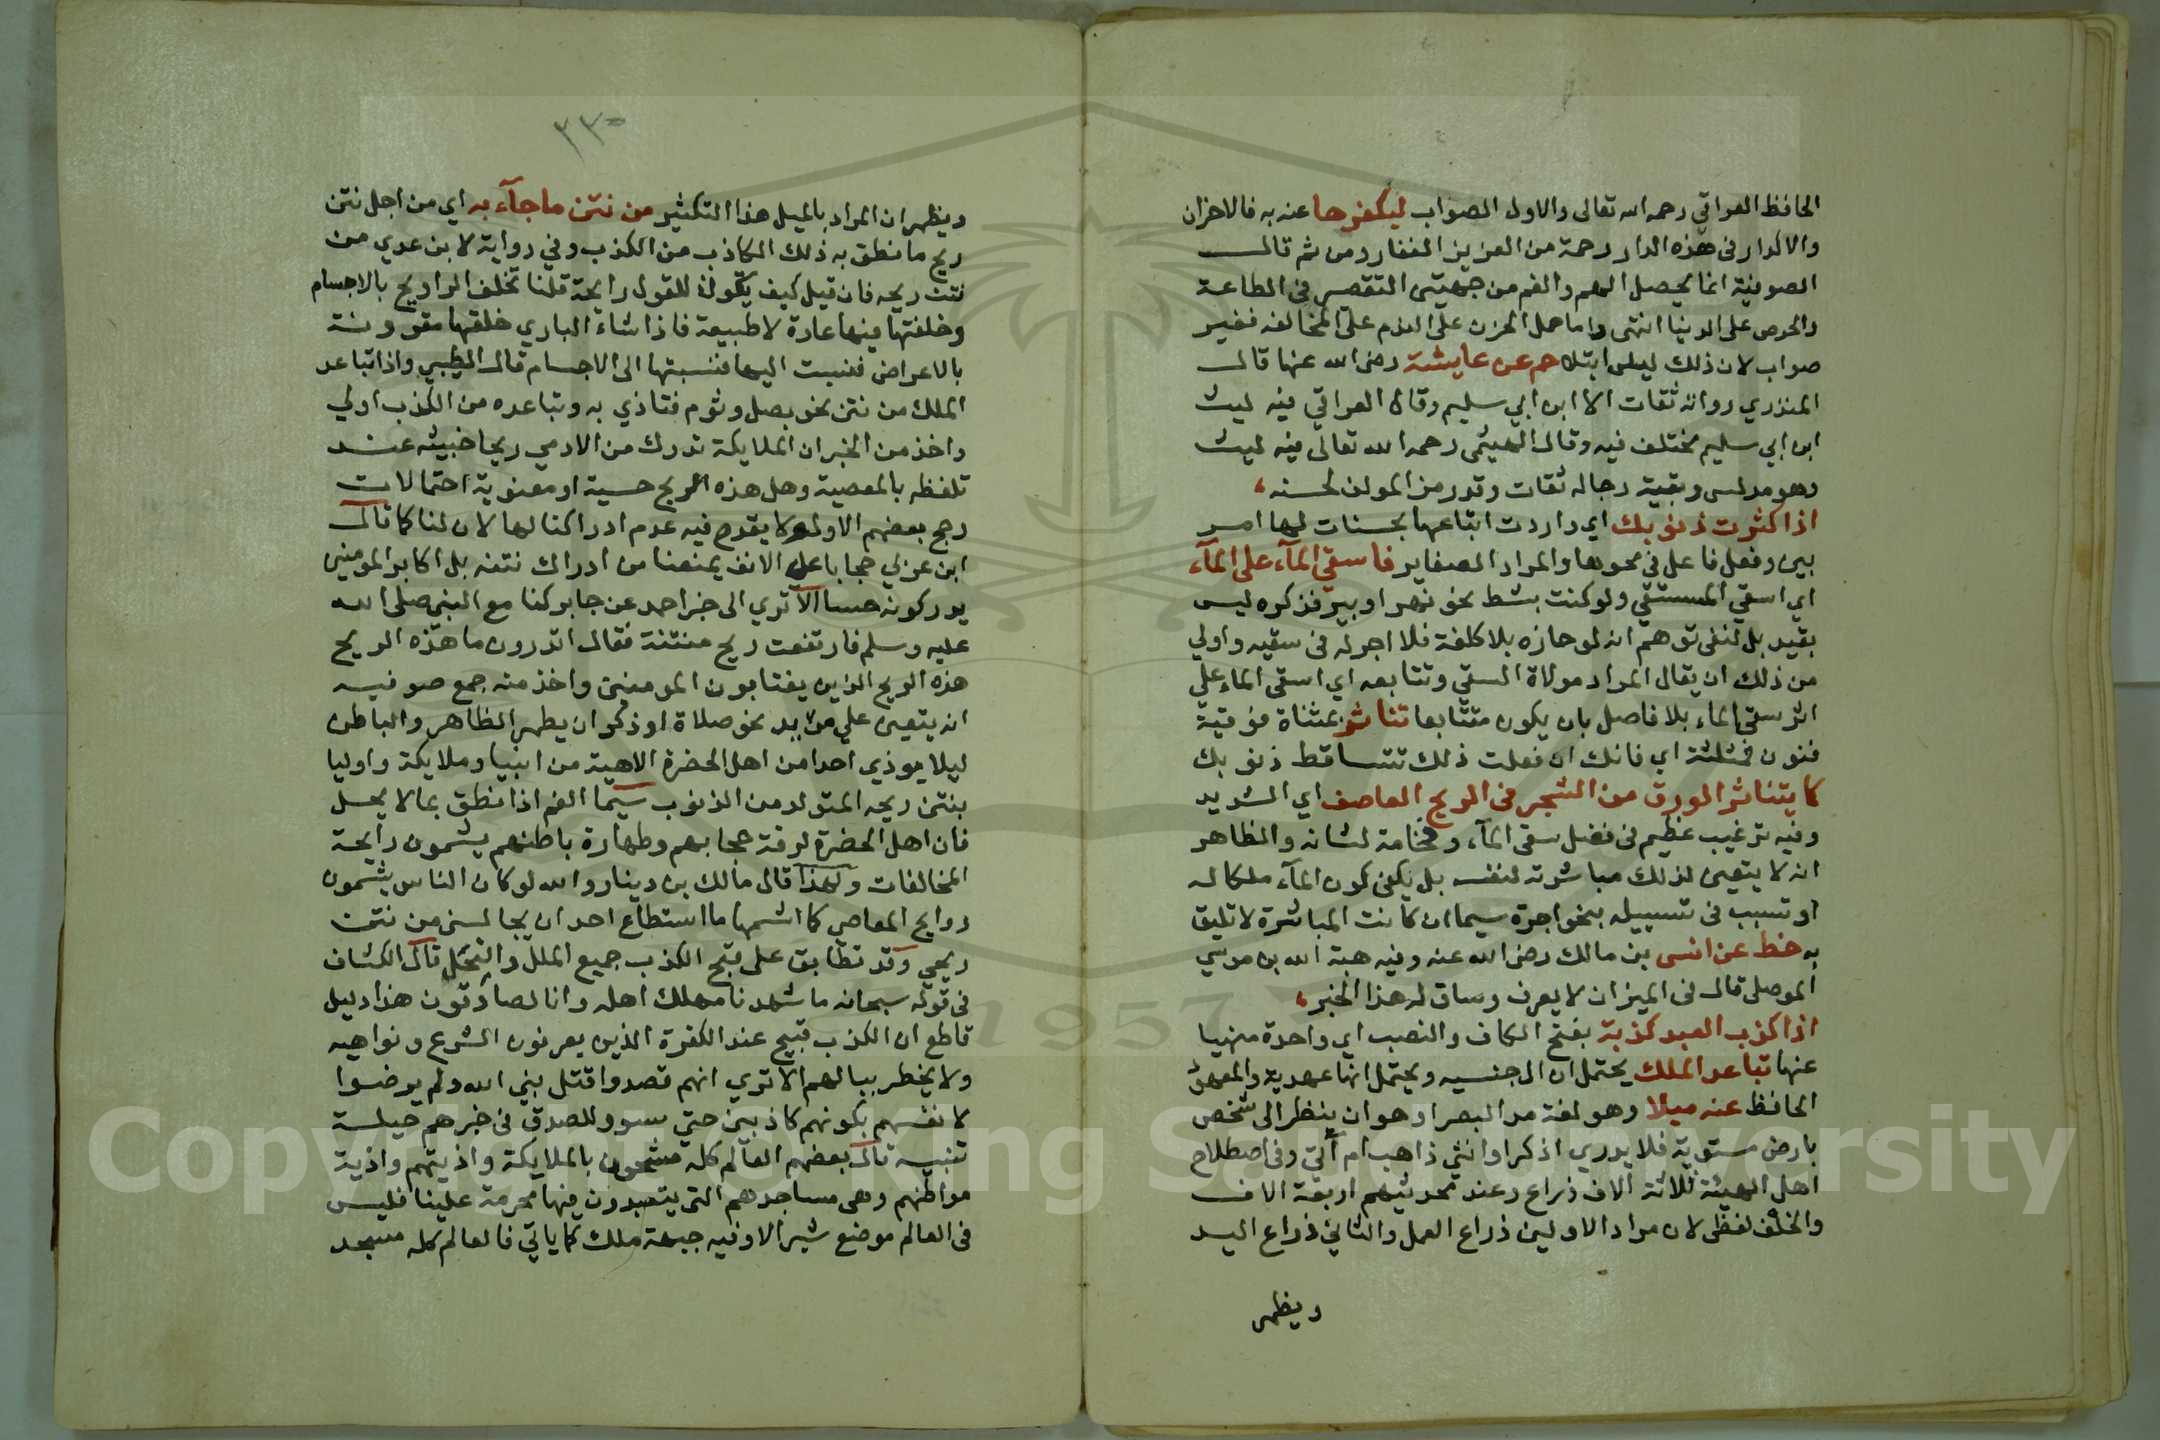 الحافظ العراقي رحمه الله تعالى والاول الصواب ليكفرها عنه به فالاحزان
والاكدار فى هذه الدار رحمة من العزيز الغفار ومن ثم قالـــ
الصوفية انما يحصل الهم والغم من جهتى التقصير فى الطاعة
والحرص على الدنيا انتهى واما حمل الحزن على الندم على المخالفه فغير
صواب لان ذلك ليس ابتلاء حم عن عايشة رضى الله عنها قالـــ
المنذري رواته ثقات الا ابن ابي سليم وقال العراقي فيه ليث
ابن ابي سليم مختلف فيه وقال الهيثمى رحمه الله تعالى فيه ليث
وهو مدلس وبقية رجاله ثقات وقد رمز المولف لحسنه
اذا كثرت ذنوبك اي واردت اتباعها بحسنات لهـا امر
بين وفعل فاعل فى محوها والمراد الصغاير فاسقى المآء على المآء
اي اسقى المستقي ولو كنت بشط نحو نهر او بير فذكره ليس
بقيد بل لنفى توهم انه لو حازه بلا كلفة فلا اجر له فى سقيه واولي
من ذلك ان يقال المراد موالاة السقي وتتابعه اي اسقى الماء علي
اثر سقى الماء بلا فاصل بان يكون متتابعا تناثر بمثناة فوقية
فنون فمثلثة اي فانك ان فعلت ذلك تتساقط ذنوبك
كما يتناثر الورق من الشجر فى الريح العاصف اي الشديد
وفيه ترغيب عظيم فى فضل سقى المآء وفخامة لشانه والظاهر
انه لا يتعين لذلك مباشرته لنفسه بل يكفى كون المآء ملكا له
او تسبب فى تسبيله بنحو اجرة سيما ان كانت المباشرة لا تليق
به خط عن انس بن مالك رضى الله عنه وفيه هبة الله بن موسي
الموصلى قال فى الميزان لا يعرف وساق له هذا الخبر
اذا كذب العبد كذبة بفتح الكاف والنصب اي واحدة منهيا
عنها تباعد الملك يحتمل ان ال جنسيه ويحتمل انها عهدية والمعهود
الحافظ عنه ميلا وهو لغة مد البصر او هو ان ينظر الى شخص
بارض مستوية فلا يدري اذكر او انثي ذاهب ام آتى وفى اصطلاح
اهل الهيئة ثلاثة الاف ذراع وعند محدثيهم اربعة الاف
والخلف لفظى لان مراد الاولين ذراع العمل والثاني ذراع اليد
ويظهر
٣٣٠
ويظهر ان المراد بالميل هذا التكثير من نتن ما جآء به اي من اجل نتن
ريح ما نطق به ذلك الكاذب من الكذب وفي رواية لابن عدي من
نتن ريحه فان قيل كيف يكون للقول رايحة قلنا تخلف الروايح بالاجسام
وخلقتها فيها عادة لا طبيعة فاذا شاء الباري خلقها مقرونة
بالاعراض فنسبت اليها فنسبتها الى الاجسام قال الطيبي واذا تباعد
الملك من نتن نحو بصل وثوم فتاذي به وتباعده من الكذب اولي
واخذ من الخبر ان الملايكة تدرك من الادمي ريحا خبيثه عنـد
تلفظه بالمعصية وهل هذه الريح حسية او معنوية احتمالات
رجح بعضهم الاول ولا يقدح فيه عدم ادراكنا لها لان لنا كما قالـ
ابن عربي حجابا على الانف يمنعنا من ادراك نتنه بل اكابر المومنين
يدركونه حسا الا تري الى خبر احمد عن جابر كنا مع النبى صلى الله
عليه وسلم فارتفعت ريح منتنة فقال اتدرون ما هذه الريح
هذه الريح الذين يغتابون المومنين واخذ منه جمع صوفيـه
انه يتعين علي من يريد نحو صلاة او ذكر ان يطهر الظاهر والباطن
ليلا يوذي احدا من اهل الحضرة الالهية من انبيا وملايكة واوليا
بنتن ريحه المتولد من الذنوب سيما الفم اذا نطق بما لا يحـل
فان اهل الحضرة لرقة حجابهم وطهارة باطنهم يشمون رايحة
المخالفات ولهذا قال مالك بن دينار والله لو كان الناس يشمون
روايح المعاصى كما اشمها ما استطاع احد ان يجالسنى من نتن
ريحي وقد تطابق على قبح الكذب جميع الملل والنحل قال الكشاف
فى قوله سبحانه ما شهدنا مهلك اهله وانا لصادقون هذا دليل
قاطع ان الكذب قبيح عند الكفرة الذين يعرفون الشرع ونواهيه
ولا يخطر ببالهم الا تري انهم قصدوا قتل بنى الله ولم يرضوا
لانفسهم بكونهم كاذبين حتي سووا للصدق فى خبرهم حيلـة
تنبيـه قال بعضهم العالم كله مشحون بالملايكة واذيتهم واذية
مواطنهم وهى مساجدهم التى يتعبدون فيها محرمة علينا فليس
فى العالم موضع شبر الا وفيه جبهة ملك كما ياتي فالعالم كله مسجد
Copyright © King Saud University
1957